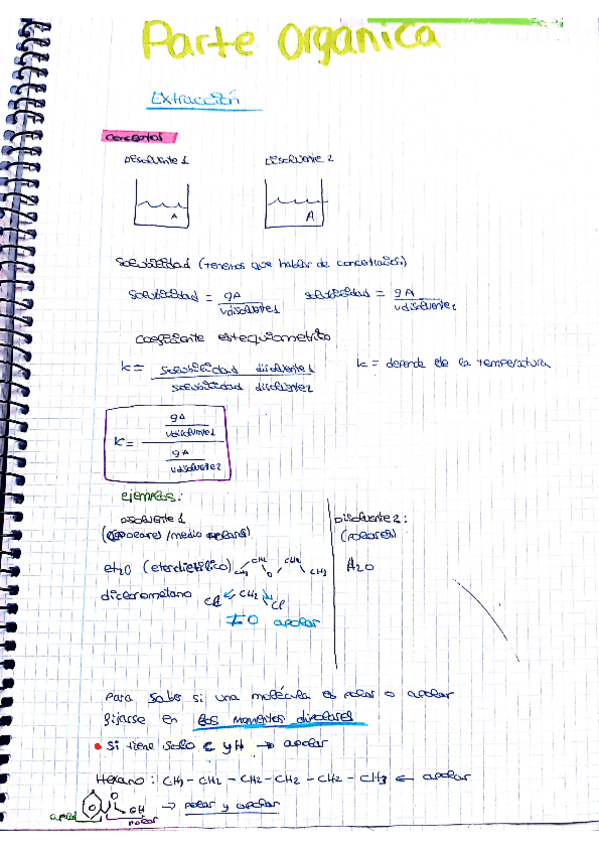 Parte Organica
Extracción
Conceptos
Disolvente 1 Disolvente 2
A A
Solubilidad (tenemos que hablar de concentración)
Solubilidad = gA / Vdisolvente1 solubilidad = gA / Vdisolvente2
Coeficiente estequiometrico
K = solubilidad disolvente 1 / solubilidad disolvente 2 K = depende de la temperatura
K = gA / Vdisolvente1 / gA / Vdisolvente2
ejemplos:
Disolvente 1 Disolvente 2:
(apolares/medio polares) (polares)
et2O (eterdietílico) CH3 CH2 O CH2 CH3 H2O
diclorometano Cl CH2 Cl
≠0 apolar
Para saber si una molécula es polar o apolar
fijarse en los momentos dipolares
• Si tiene solo C y H → apolar
Hexano: CH3 - CH2 - CH2 - CH2 - CH2 - CH3 ← apolar
O OH → polar y apolar
apolar polar